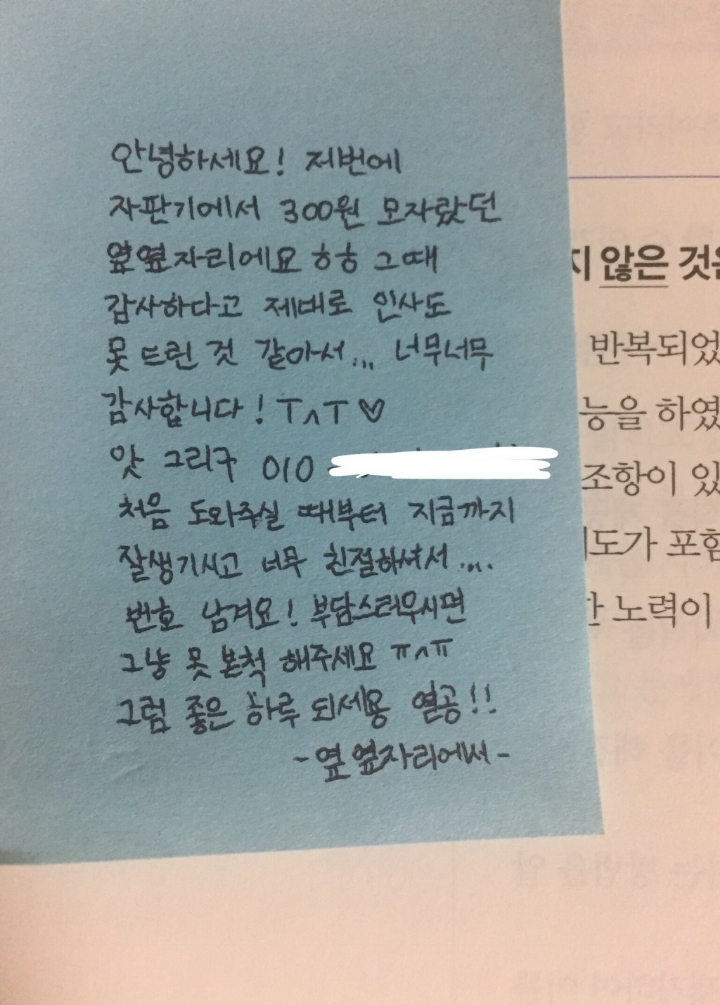 안녕하세요! 저번에
자판기에서 300원 모자랐던
옆옆자리에요 ㅎㅎ 그때
감사하다고 제대로 인사도
못 드린 것 같아서... 너무너무
감사합니다! T^T ♡
앗 그리구 010
처음 도와주실 때부터 지금까지
잘생기시고 너무 친절하셔서...
번호 남겨요! 부담스러우시면
그냥 못 본척 해주세요 ㅠ^ㅠ
그럼 좋은 하루 되세용 열공!!
- 옆옆자리에서 -
지 않은 것은
반복되었
능을 하였
조항이 있
도가 포함
한 노력이